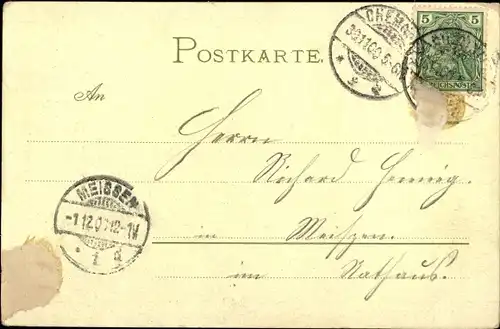 POSTKARTE.
CHEMN
30.11.00.5-6
5
5
REICHSPOST
An
Herrn
Richard Hennig.
MEISSEN
-1.12.0 .12-1V
* 1 d
in Meißen.
im Rathaus.